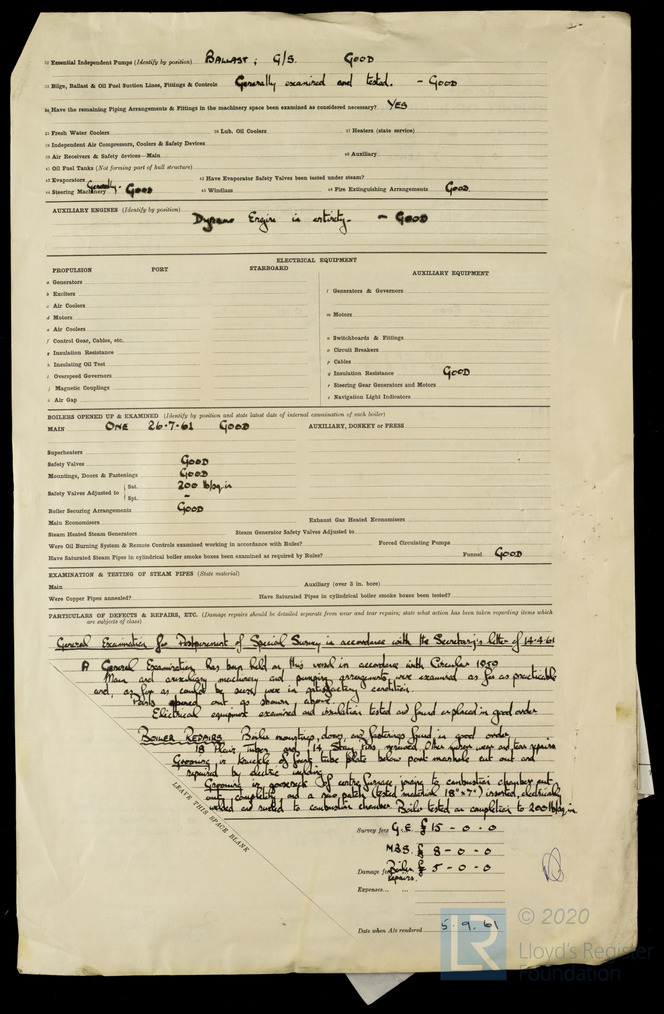 32 Essential Independent Pumps (Identify by position) BALLAST; G/S. GOOD
33 Bilge, Ballast & Oil Fuel Suction Lines, Fittings & Controls Generally examined and tested. - GOOD
34 Have the remaining Piping Arrangements & Fittings in the machinery space been examined as considered necessary? YES
35 Fresh Water Coolers 36 Lub. Oil Coolers 37 Heaters (state service)
38 Independent Air Compressors, Coolers & Safety Devices
39 Air Receivers & Safety devices—Main 40 Auxiliary
41 Oil Fuel Tanks (Not forming part of hull structure)
42 Evaporators 43 Have Evaporator Safety Valves been tested under steam?
44 Steering Machinery Generally. GOOD 45 Windlass 46 Fire Extinguishing Arrangements GOOD
AUXILIARY ENGINES (Identify by position)
Dynamo Engine in entirety. - GOOD
ELECTRICAL EQUIPMENT
PROPULSION PORT STARBOARD AUXILIARY EQUIPMENT
a Generators
b Exciters l Generators & Governors
c Air Coolers
d Motors m Motors
e Air Coolers
f Control Gear, Cables, etc. n Switchboards & Fittings
g Insulation Resistance o Circuit Breakers
h Insulating Oil Test p Cables
i Overspeed Governors q Insulation Resistance GOOD
j Magnetic Couplings r Steering Gear Generators and Motors
k Air Gap Navigation Light Indicators
BOILERS OPENED UP & EXAMINED (Identify by position and state latest date of internal examination of each boiler)
MAIN ONE 26-7-61 GOOD AUXILIARY, DONKEY or PRESS
Superheaters
Safety Valves GOOD
Mountings, Doors & Fastenings GOOD
Safety Valves Adjusted to { Sat. 200 lb/sq.in
Spt. -
Boiler Securing Arrangements GOOD
Main Economisers Exhaust Gas Heated Economisers
Steam Heated Steam Generators Steam Generator Safety Valves Adjusted to
Were Oil Burning System & Remote Controls examined working in accordance with Rules? Forced Circulating Pumps
Have Saturated Steam Pipes in cylindrical boiler smoke boxes been examined as required by Rules? Funnel GOOD
EXAMINATION & TESTING OF STEAM PIPES (State material)
Main Auxiliary (over 3 in. bore)
Were Copper Pipes annealed? Have Saturated Pipes in cylindrical boiler smoke boxes been tested?
PARTICULARS OF DEFECTS & REPAIRS, ETC. (Damage repairs should be detailed separate from wear and tear repairs; state what action has been taken regarding items which are subjects of class)
General Examination for Postponement of Special Survey in accordance with the Secretary's letter of 14-4-61
A General Examination has been held on this vessel in accordance with Circular 1959
Main and auxiliary machinery and pumping arrangements were examined as far as practicable
and, as far as could be seen, were in satisfactory condition.
Parts opened out as shown above.
Electrical equipment examined and insulation tested and found or placed in good order
BOILER REPAIRS Boiler mountings, doors, and fastenings found in good order
18 Plain Tubes and 14 Stay tubes renewed. Other minor wear and tear repairs
Grooving in knuckle of front tube plate below port manhole cut out and
repaired by electric welding
Grooving in gooseneck of centre furnace joining to combustion chamber cut
out completely and a new patch (tested material 18" x 7") inserted, electrically
welded and riveted to combustion chamber Boiler tested on completion to 200 lb/sq.in.
LEAVE THIS SPACE BLANK
Survey fees G.E. £15 - 0 - 0
M.B.S. £ 8 - 0 - 0
Damage fee Boiler repairs. £ 5 - 0 - 0
Expenses
Date when A/c rendered 5.9.61
LR © 2020
Lloyd's Register
Foundation